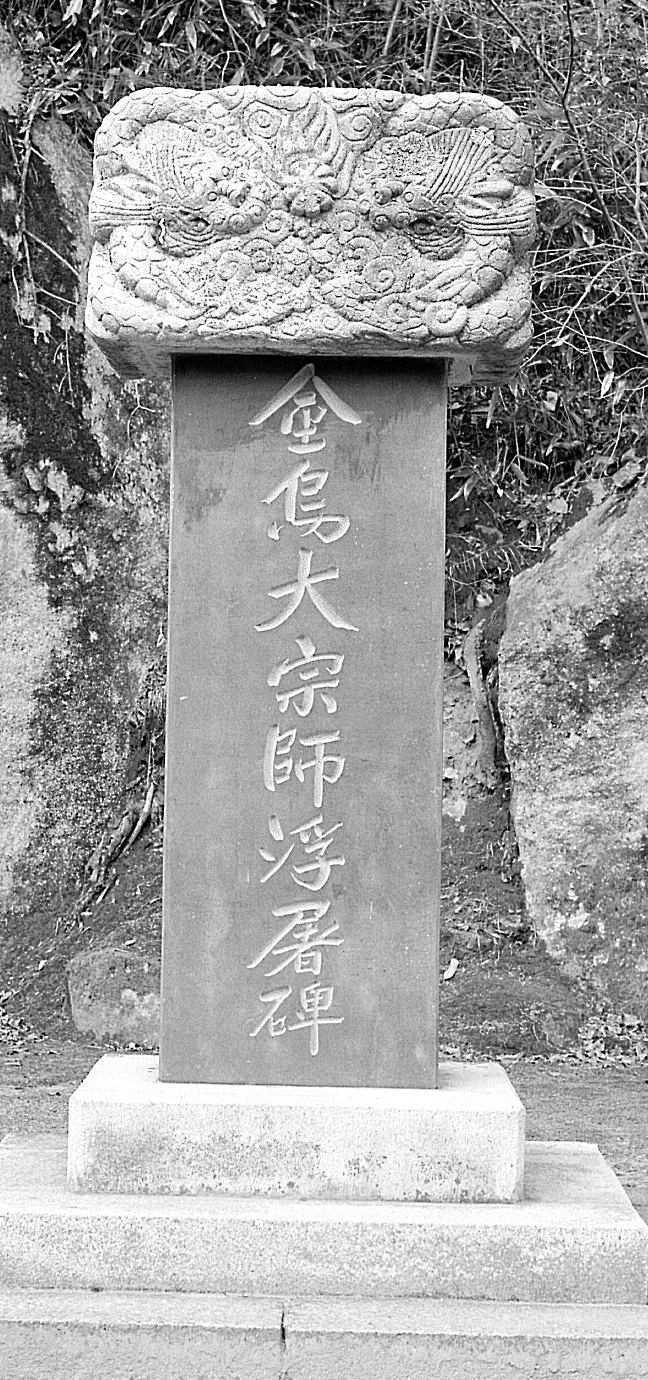 金烏大宗師浮屠碑